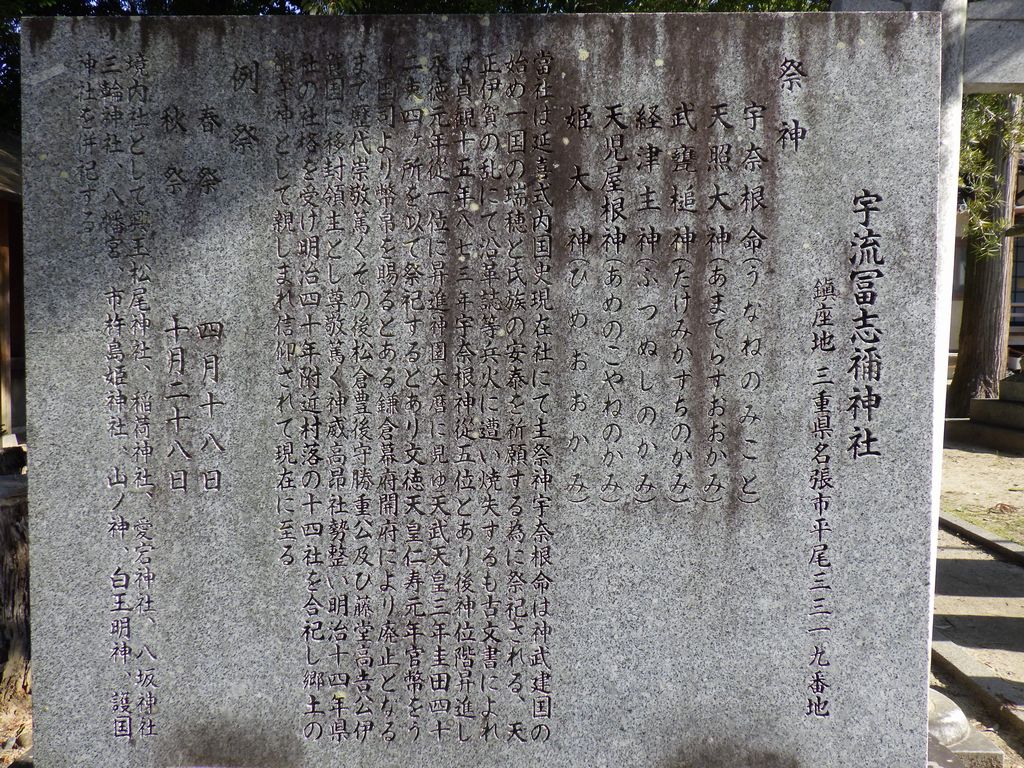 宇流冨志禰神社
鎮座地 三重県名張市平尾三三一九番地
祭神
宇奈根命(うなねのみこと)
天照大神(あまてらすおおかみ)
武甕槌神(たけみかずちのかみ)
経津主神(ふつぬしのかみ)
天児屋根神(あめのこやねのかみ)
姫大神(ひめおおかみ)
當社は延喜式内国史現在社にて主祭神宇奈根命は神武建国の
始め一国の瑞穂と氏族の安泰を祈願する為に祭祀される、天
正伊賀の乱にて沿革誌等兵火に遭い焼失するも古文書によれ
ば貞観十五年八七三年宇奈根神従五位とあり後神位階昇進し
永徳元年従一位に昇進神圍大暦に見ゆ天武天皇三年圭田四十
二束四ヶ所を以て祭祀するとあり文徳天皇仁寿元年官幣をう
け国司より幣帛を賜るとある鎌倉幕府開府により廃止となる
まで歴代崇敬篤くその後松倉豊後守勝重公及び藤堂高吉公伊
賀国に移封領主とし尊敬篤く神威高昂社勢整い明治十四年県
社の社格を受け明治四十年附近村落の十四社を合祀し郷土の
総社神として親しまれ信仰されて現在に至る
例祭
春祭 四月十八日
秋祭 十月二十八日
境内社として興玉松尾神社、稲荷神社、愛宕神社、八坂神社
三輪神社、八幡宮、市杵島姫神社、山ノ神、白玉明神、護国
神社を併記する